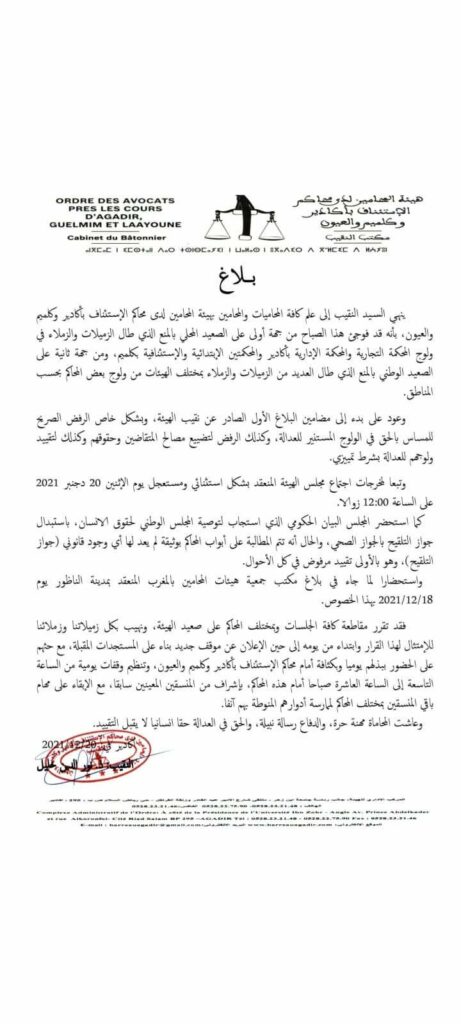 ORDRE DES AVOCATS
PRES LES COURS
D'AGADIR,
GUELMIM ET LAAYOUNE
Cabinet du Bâtonnier
هيئة المحامين لدى محاكم
الإستئناف بأكادير
وكلميم والعيون
مكتب النقيب
بلاغ
ينهي السيد النقيب إلى علم كافة المحاميات والمحامين بهيئة المحامين لدى محاكم الإستئناف بأكادير وكلميم
والعيون، بأنه قد فوجئ هذا الصباح من جهة أولى على الصعيد المحلي بالمنع الذي طال الزميلات والزملاء في
ولوج المحكمة التجارية والمحكمة الإدارية بأكادير والمحكمتين الإبتدائية والإستئنافية بكلميم، ومن جهة ثانية على
الصعيد الوطني بالمنع الذي طال العديد من الزميلات والزملاء بمختلف الهيئات من ولوج بعض المحاكم بحسب
المناطق.
وعود على بدء إلى مضامين البلاغ الأول الصادر عن نقيب الهيئة، وبشكل خاص الرفض الصريح
للمساس بالحق في الولوج المستنير للعدالة، وكذلك الرفض لتضييع مصالح المتقاضين وحقوقهم وكذلك لتقييد
ولوجهم للعدالة بشرط تمييزي.
وتبعا لمخرجات اجتماع مجلس الهيئة المنعقد بشكل استثنائي ومستعجل يوم الإثنين 20 دجنبر 2021
على الساعة 12:00 زوالا.
كما استحضر المجلس البيان الحكومي الذي استجاب لتوصية المجلس الوطني لحقوق الانسان، باستبدال
جواز التلقيح بالجواز الصحي، والحال أنه تتم المطالبة على أبواب المحاكم بوثيقة لم يعد لها أي وجود قانوني (جواز
التلقيح)، وهو بالأولى تقييد مرفوض في كل الأحوال.
واستحضارا لما جاء في بلاغ مكتب جمعية هيئات المحامين بالمغرب المنعقد بمدينة الناظور يوم
2021/12/18 بهذا الخصوص.
فقد تقرر مقاطعة كافة الجلسات وبمختلف المحاكم على صعيد الهيئة، ونهيب بكل زميلاتنا وزملائنا
للإمتثال لهذا القرار وابتداء من يومه إلى حين الإعلان عن موقف جديد بناء على المستجدات المقبلة، مع حثهم
على الحضور ببذلهم يوميا وبكثافة أمام محاكم الإستئناف بأكادير وكلميم والعيون، وتنظيم وقفات يومية من الساعة
التاسعة إلى الساعة العاشرة صباحا أمام هذه المحاكم، بإشراف من المنسقين المعينين سابقا، مع الإبقاء على مهام
باقي المنسقين بمختلف المحاكم لممارسة أدوارهم المنوطة بهم آنفا.
وعاشت المحاماة مهنة حرة، والدفاع رسالة نبيلة، والحق في العدالة حقا انسانيا لا يقبل التقييد.
2021/12/20
النقيب
خليل
Complexe Administratif de l'Ordre: A côté de la Présidence de l'Université Ibn Zohr - Angle Av. Prince Abdelkader